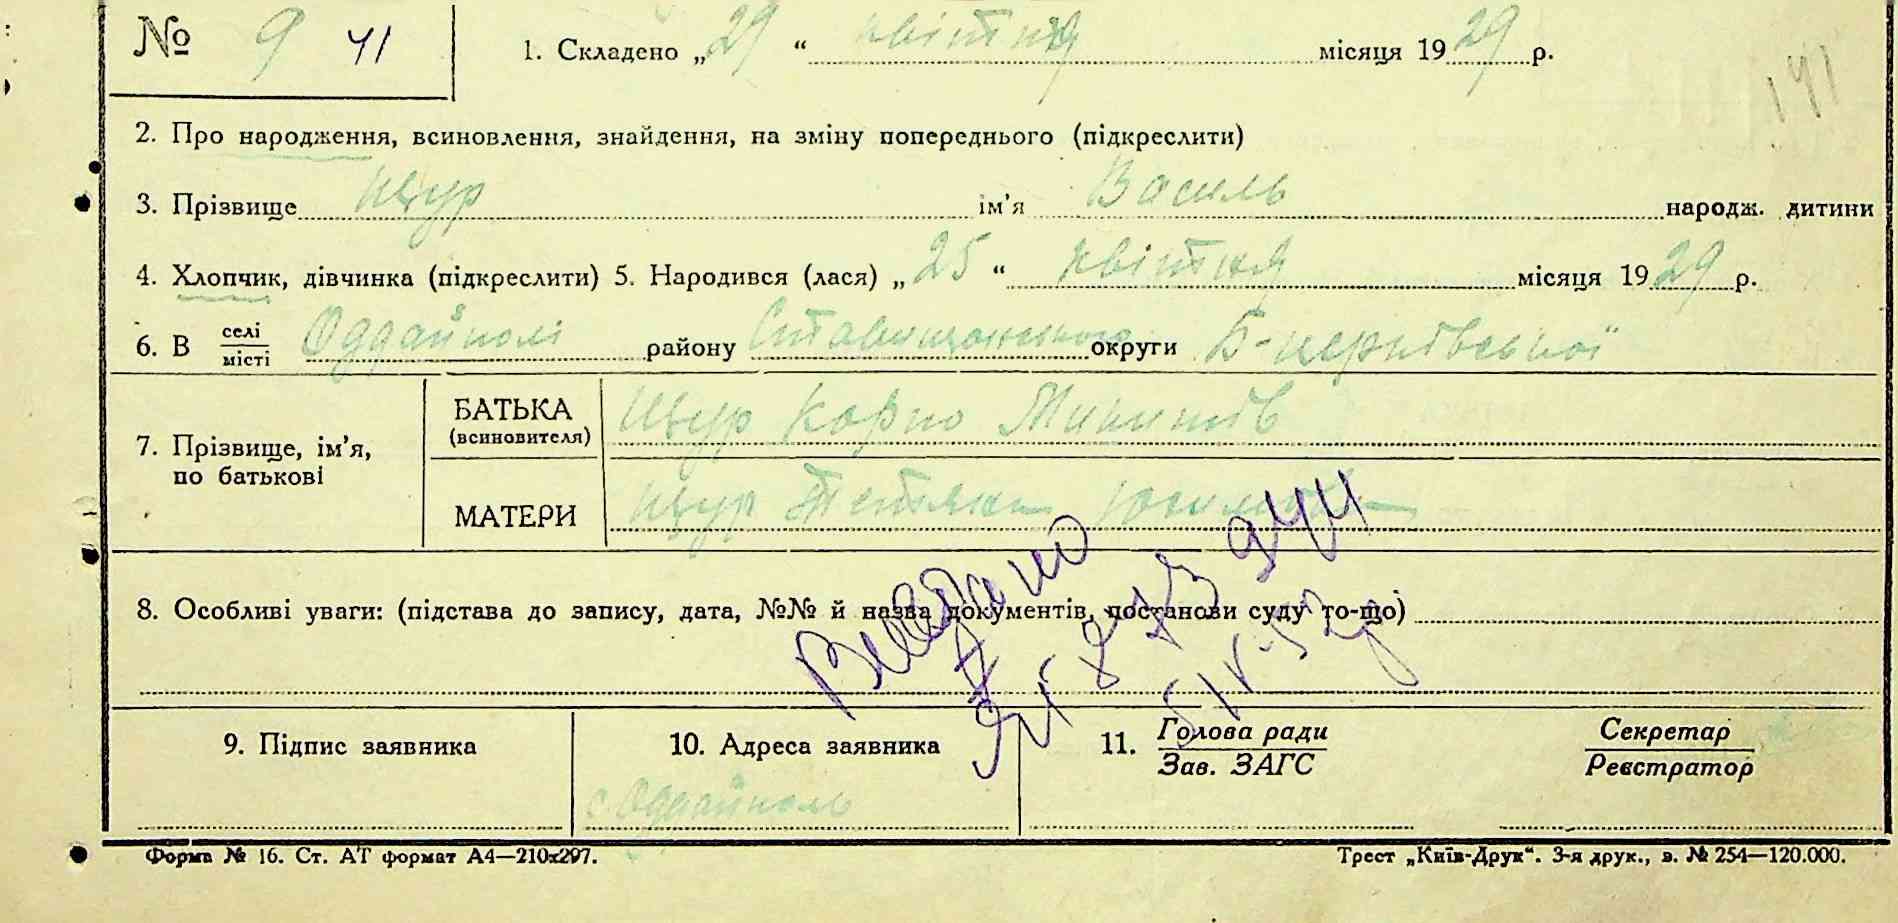 № 9 41 1. Складено „29“ квітня місяця 1929 р.
141
2. Про народження, всиновлення, знайдення, на зміну попереднього (підкреслити)
3. Прізвище Щур ім’я Василь народж. дитини
4. Хлопчик, дівчинка (підкреслити) 5. Народився (лася) „25“ квітня місяця 1929 р.
6. В селі/місті Оддайполі району Ставищанського округи Б-церківської
7. Прізвище, ім’я, по батькові
БАТЬКА (всиновителя) Щур Карпо Микитів
МАТЕРИ Щур Тетяна
8. Особливі уваги: (підстава до запису, дата, №№ й назва документів, постанови суду то-що)
9. Підпис заявника 10. Адреса заявника 11. Голова ради Секретар
Зав. ЗАГС Реєстратор
с. Оддайполь
Форма № 16. Ст. АТ формат А4—210х297. Трест „Київ-Друк“. 3-я друк., з. № 254—120.000.